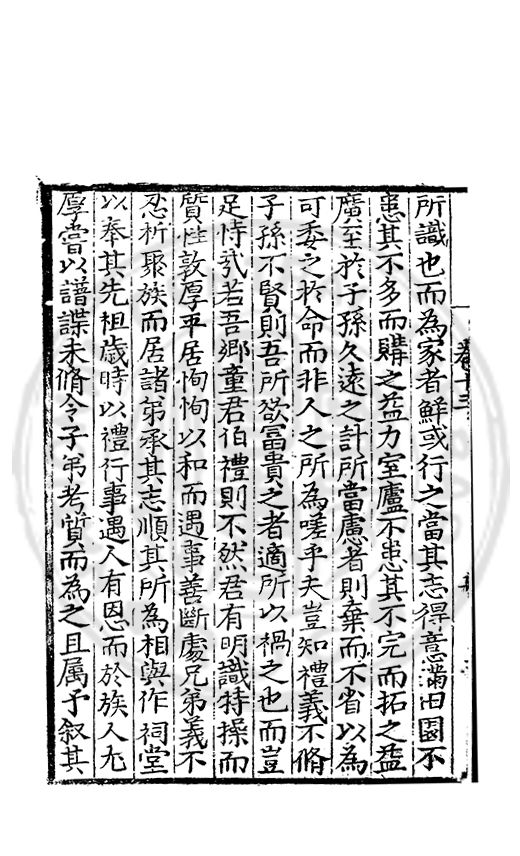 所識也而為家者鮮或行之當其志得意滿田園不
患其不多而購之益力室廬不患其不完而拓之益
廣至於子孫久遠之計所當慮者則棄而不省以為
可委之於命而非人之所為嗟乎夫豈知禮義不脩
子孫不賢則吾所欲富貴之者適所以禍之也而豈
足恃㢤若吾鄉童君伯禮則不然君有明識特操而
質性敦厚平居恂恂以和而遇事善斷處兄弟義不
忍析聚族而居諸弟承其志順其所為相與作祠堂
以奉其先祖歲時以禮行事遇人有恩而於族人尤
厚嘗以譜諜未脩令子弟考質而為之且属予叙其
卷十三